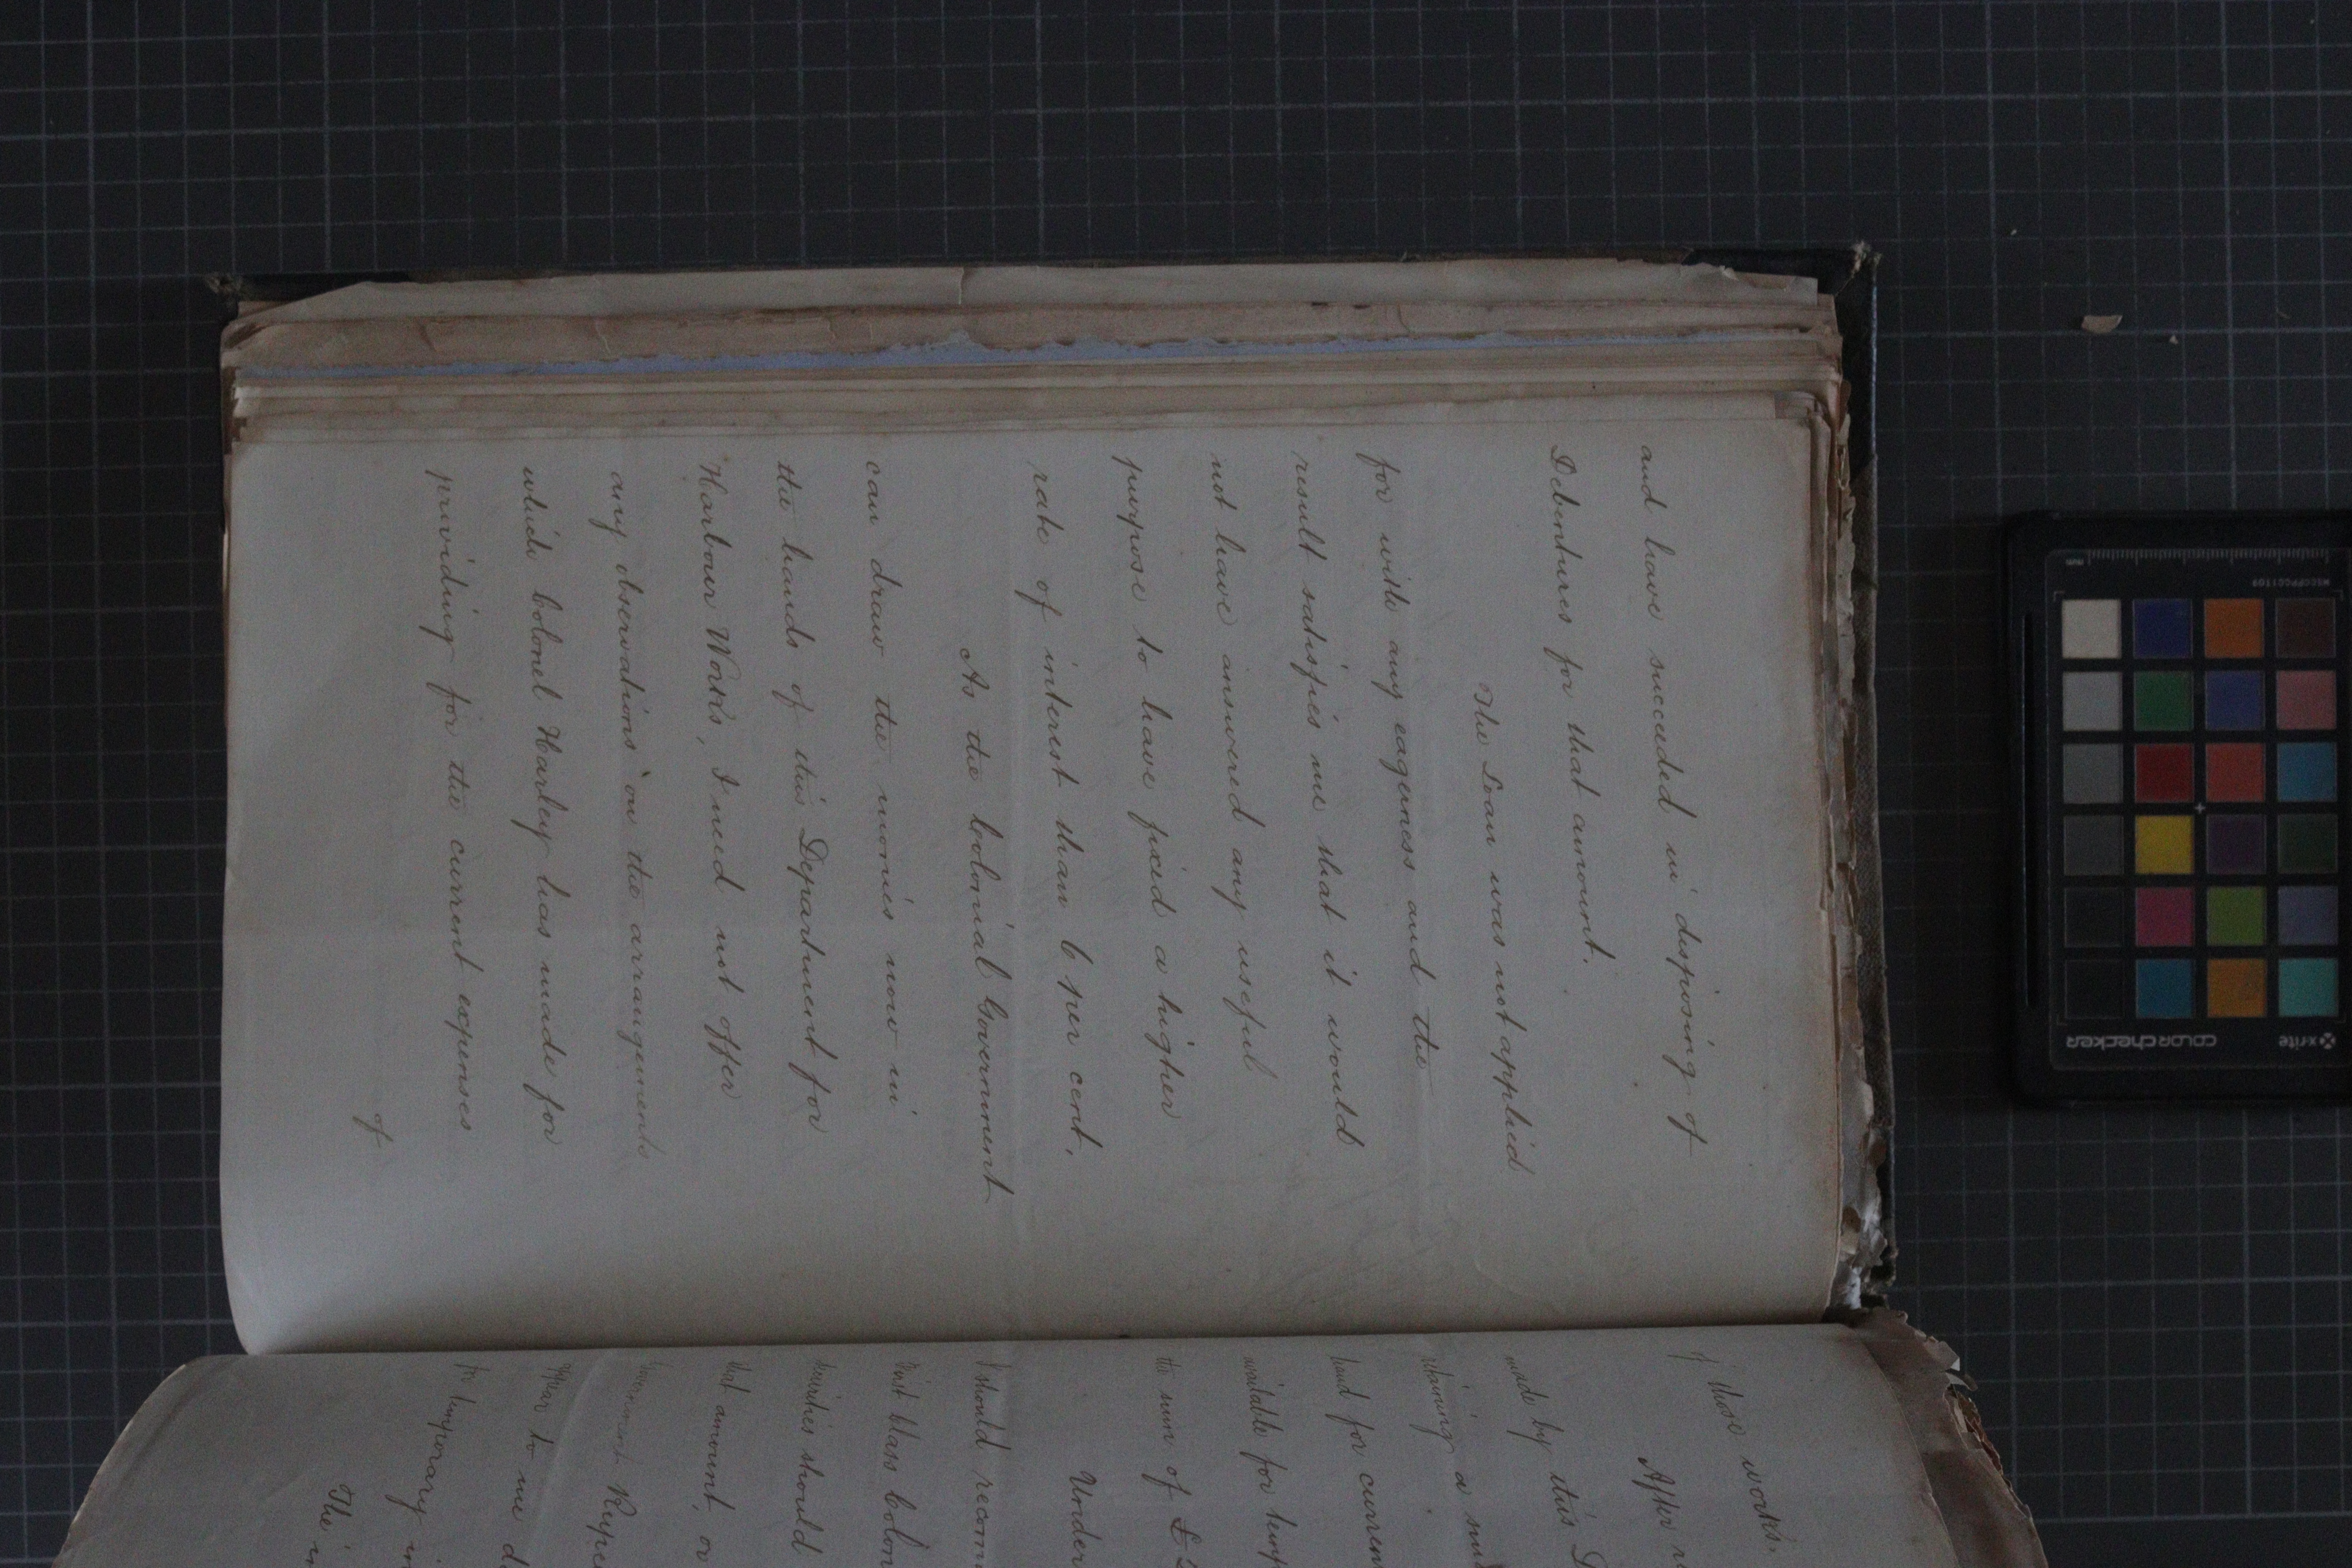 and have succeeded in disposing of
Debentures for that amount.
The Loan was not applied
for with any eagerness and the
result satisfies me that it would
not have answered any useful
purpose to have fixed a higher
rate of interest than 6 per cent.
As the Colonial Government
can draw the monies now in
the hands of this Department for
Harbour Works, I need not offer
any observations on the arrangements
which Colonel Harley has made for
providing for the current expenses
of
of those works.
After
made by this
retaining a
hand for
available for
the sum of £
Under
I should
First Class
Securities should
that amount, or
Government
appear to me
for temporary
The
colorchecker
x-rite
mm